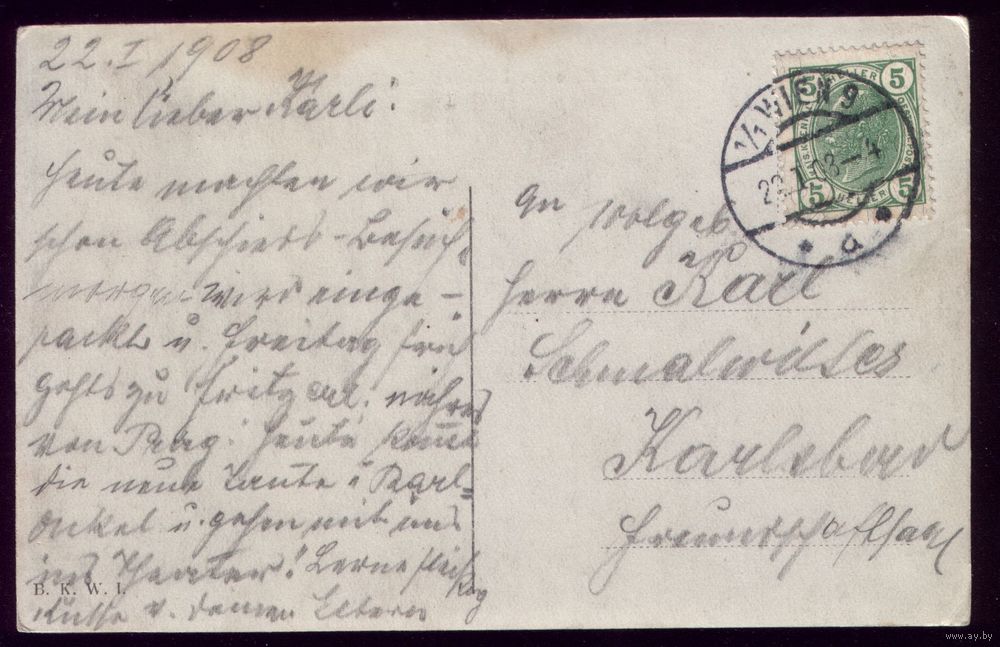 22.I 1908
Mein lieber Karli!
Heute machten wir
schon Abschieds-Besuch,
morgen wird einge-
packt u. Freitag früh
gehts zu Fritzerl. Näheres
von Prag. Heute kommt
die neue Tante u. Karl-
onkel u. gehen mit uns
ins Theater! Lerne fleißig
Küsse v. Deinen Eltern
B. K. W. I.
An Wolgeb
Herrn Karl
Schmalwitses
Karlsbad
Freundschaftsaal
1/1 WIEN 9
22. I. 08-4
* a *
5 5
HELLER
5 5
HELLER
www.ay.by